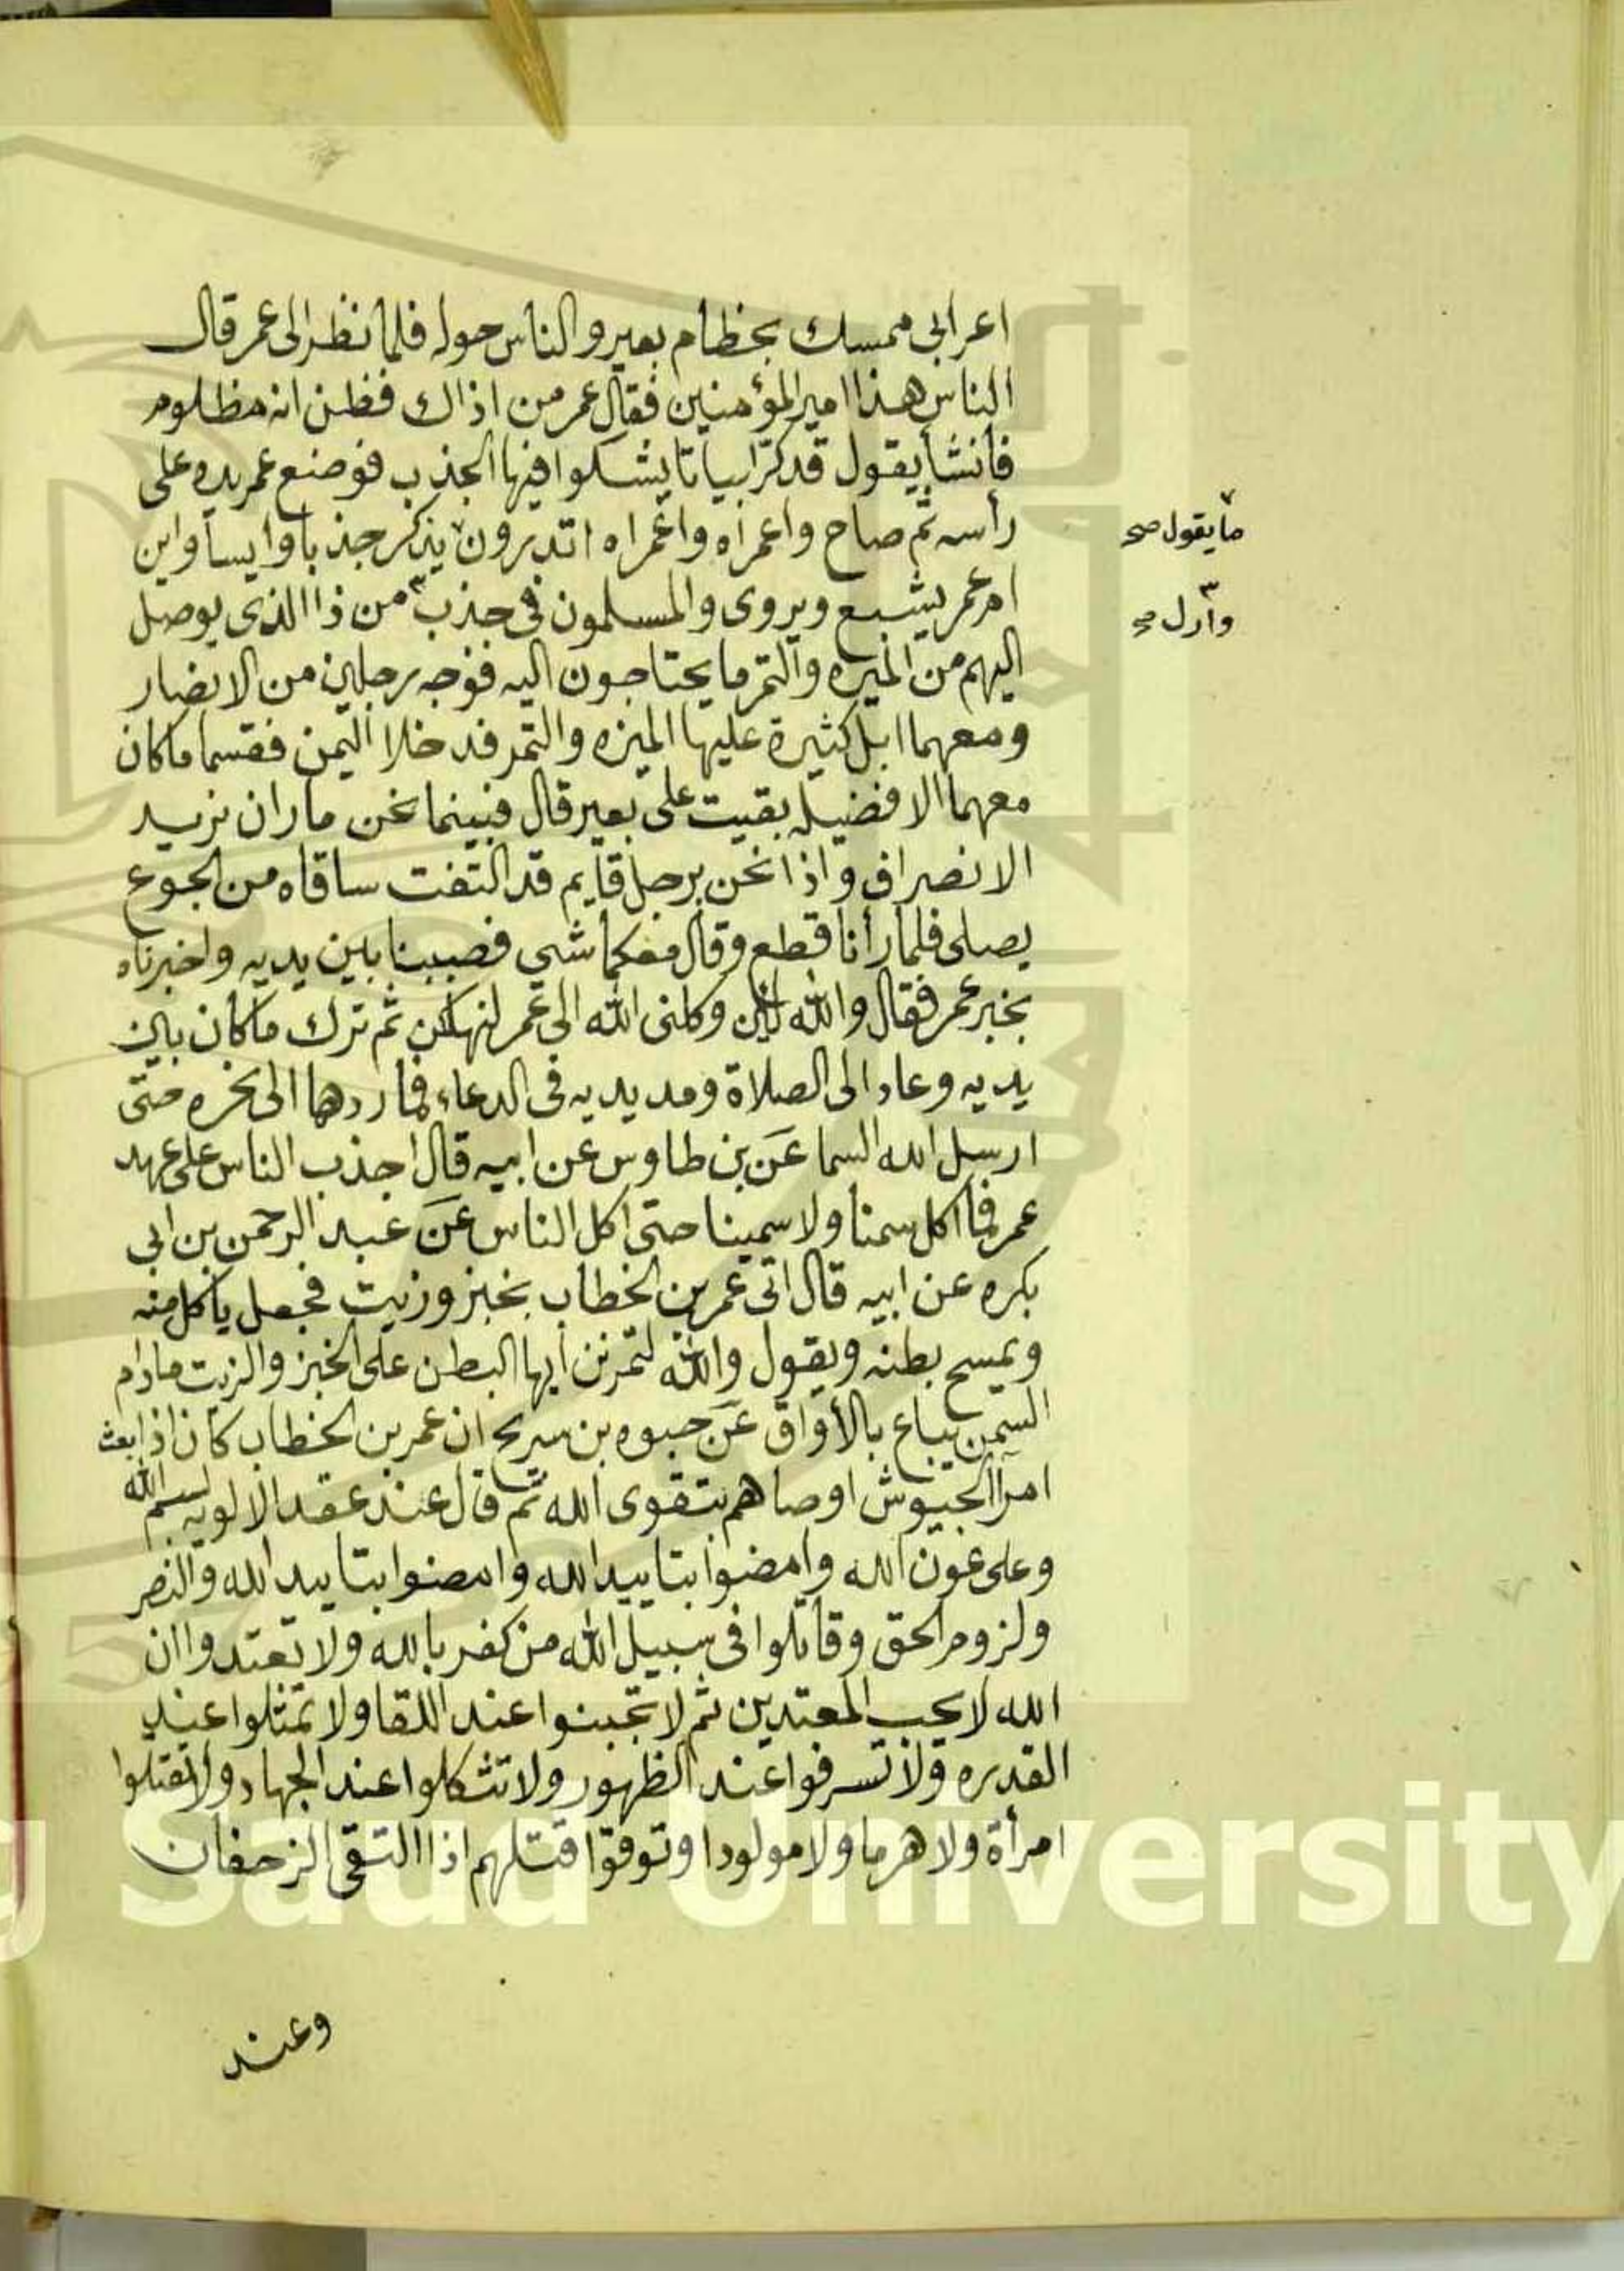 اعرابي ممسك بخطام بعير والناس حوله فلما نظر الى عمر قال
الناس هذا امير المؤمنين فقال عمر من اذاك فظن انه مظلوم
فأنشأ يقول قد كر ابياتا يشكوا فيها الجذب فوضع عمر يده على
رأسه ثم صاح واعمراه واعمراه اتدرون يذكر جذبا وايسا وابن
ما يقول صح
ام عمر يشبع ويروى والمسلمون في جذب من ذا الذي يوصل
وأزل صح
اليهم من الميره والتمر ما يحتاجون اليه فوجه برجلين من الانصار
ومعهما ابل كثيرة عليها الميره والتمر فدخلا اليمن فقسما ما كان
معهما الا فضيله بقيت على بعير قال فبينما نحن ماران نريد
الانصراف واذا نحن برجل قايم قد التفت ساقاه من الجوع
يصلى فلما رأنا قطع وقال معكما شي فصببنا بين يديه واخبرناه
بخبر عمر فقال والله لئن وكلنى الله الى عمر لنهلكن ثم ترك ما كان بين
يديه وعاد الى الصلاة ومد يديه في الدعاء فما ردهما الى نحره حتى
ارسل الله السما عن بن طاوس عن ابيه قال اجذب الناس على عهد
عمر فما اكل سمنا ولا سمينا حتى اكل الناس عن عبد الرحمن بن ابي
بكره عن ابيه قال اتى عمر بن الخطاب بخبز وزيت فجعل ياكل منه
ويمسح بطنه ويقول والله لتمرنن ايها البطن على الخبز والزيت مادام
السمن يباع بالأواق عن حيوه بن سريح ان عمر بن الخطاب كان اذا بعث
امرآ الجيوش اوصاهم بتقوى الله ثم قال عند عقد الالويه بسم الله
وعلى عون الله وامضوا بتاييد الله وامضوا بتاييد الله والنصر
ولزوم الحق وقاتلوا في سبيل الله من كفر بالله ولا تعتدوا ان
الله لا يحب المعتدين ثم لا تجبنوا عند اللقا ولا تمثلوا عند
القدره ولا تسرفوا عند الظهور ولا تشكلوا عند الجهاد ولا تقتلوا
امرأة ولا هرما ولا مولودا وتوقوا قتلهم اذا التقى الزحفان
وعند
g Saud University